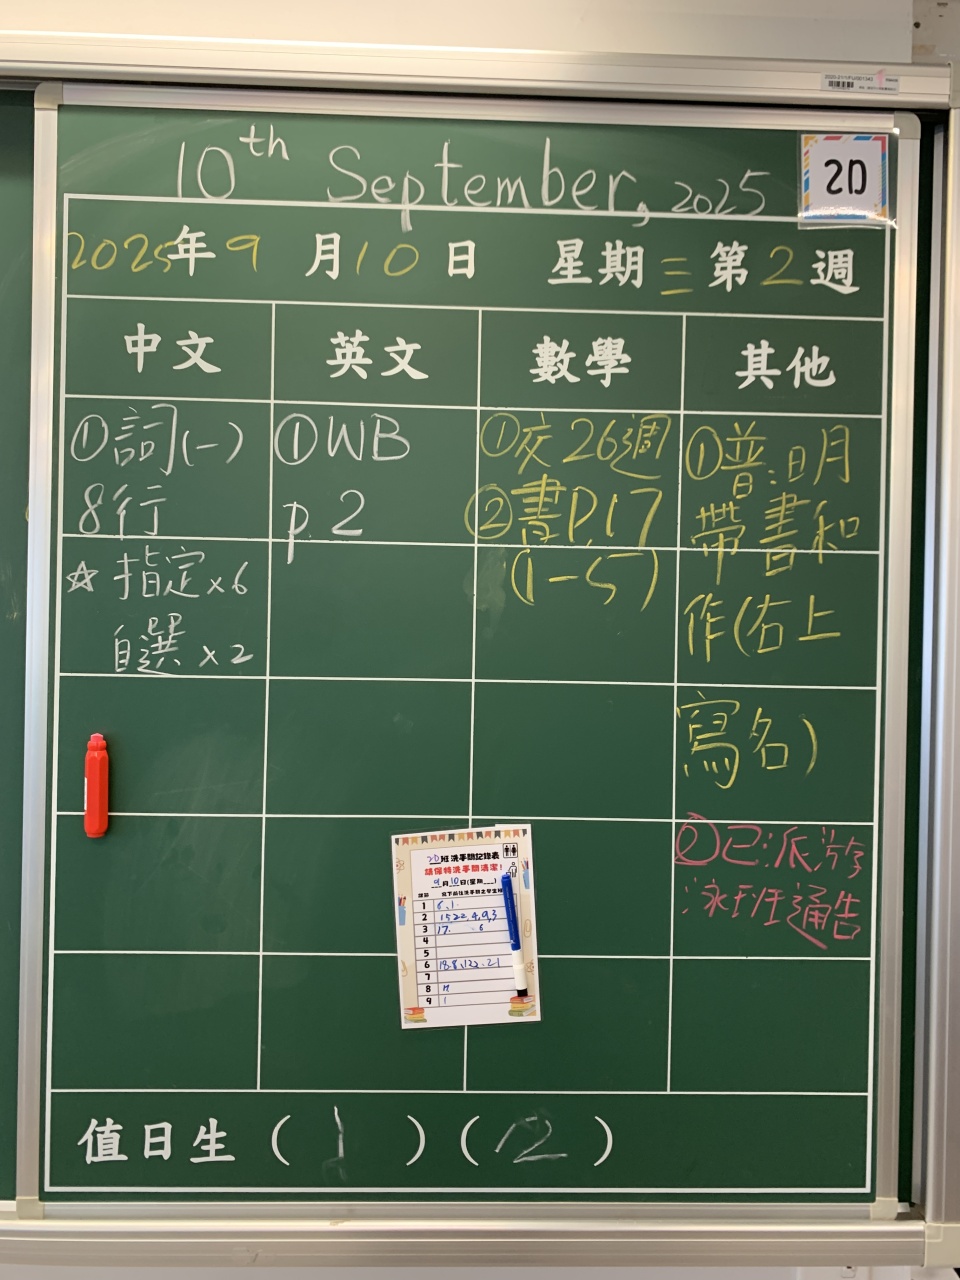 10th September, 2025
2D
2025年9月10日 星期三 第2週
中文
①詞(一)
8行
☆指定x6
自選x2
英文
①WB
p.2
數學
①交26週
②書P.17
(1-5)
其他
①普:明日
帶書和
作(右上
寫名)
②已派游
泳班通告
2D班洗手間記錄表
請保持洗手間清潔!
9月10日(星期__)
1 6、1
2 15 22, 4, 9, 3
3 17. 6
4
5
6
7
8
9
值日生(1)(2)